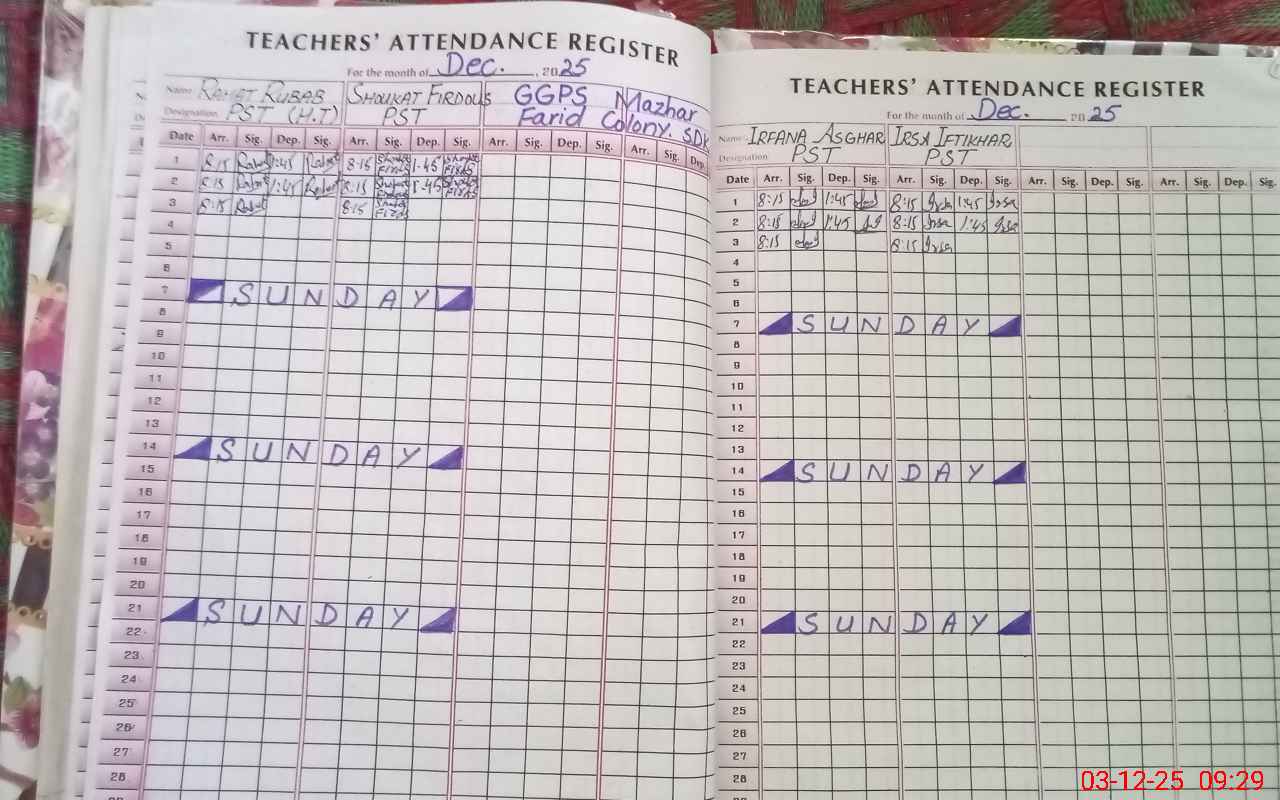 TEACHERS' ATTENDANCE REGISTER
For the month of Dec. , 2025
Name: RAHAT RUBAB SHOUKAT FIRDOUS GGPS Mazhar
Designation PST (H.T) PST Farid Colony. SDK
Date Arr. Sig. Dep. Sig. Arr. Sig. Dep. Sig. Arr. Sig. Dep. Sig. Arr. Sig. Dep.
1 8:15 Rahat 1:45 Rahat 8:15 Shoukat Firdos 1:45 Shoukat Firdos
2 8:15 Rahat 1:45 Rahat 8:15 Shoukat Firdos 1:45 Shoukat Firdos
3 8:15 Rahat 8:15 Shoukat Firdos
4
5
6
7 SUNDAY
8
9
10
11
12
13
14 SUNDAY
15
16
17
18
19
20
21 SUNDAY
22
23
24
25
26
27
28
TEACHERS' ATTENDANCE REGISTER
For the month of Dec. 2025
Name: IRFANA ASGHAR IRSA IFTIKHAR
Designation PST PST
Date Arr. Sig. Dep. Sig. Arr. Sig. Dep. Sig. Arr. Sig. Dep. Sig. Arr. Sig. Dep. Sig.
1 8:15 1:45 8:15 Irsa 1:45 Irsa
2 8:15 1:45 8:15 Irsa 1:45 Irsa
3 8:15 8:15 Irsa
4
5
6
7 SUNDAY
8
9
10
11
12
13
14 SUNDAY
15
16
17
18
19
20
21 SUNDAY
22
23
24
25
26
27
28
03-12-25 09:29